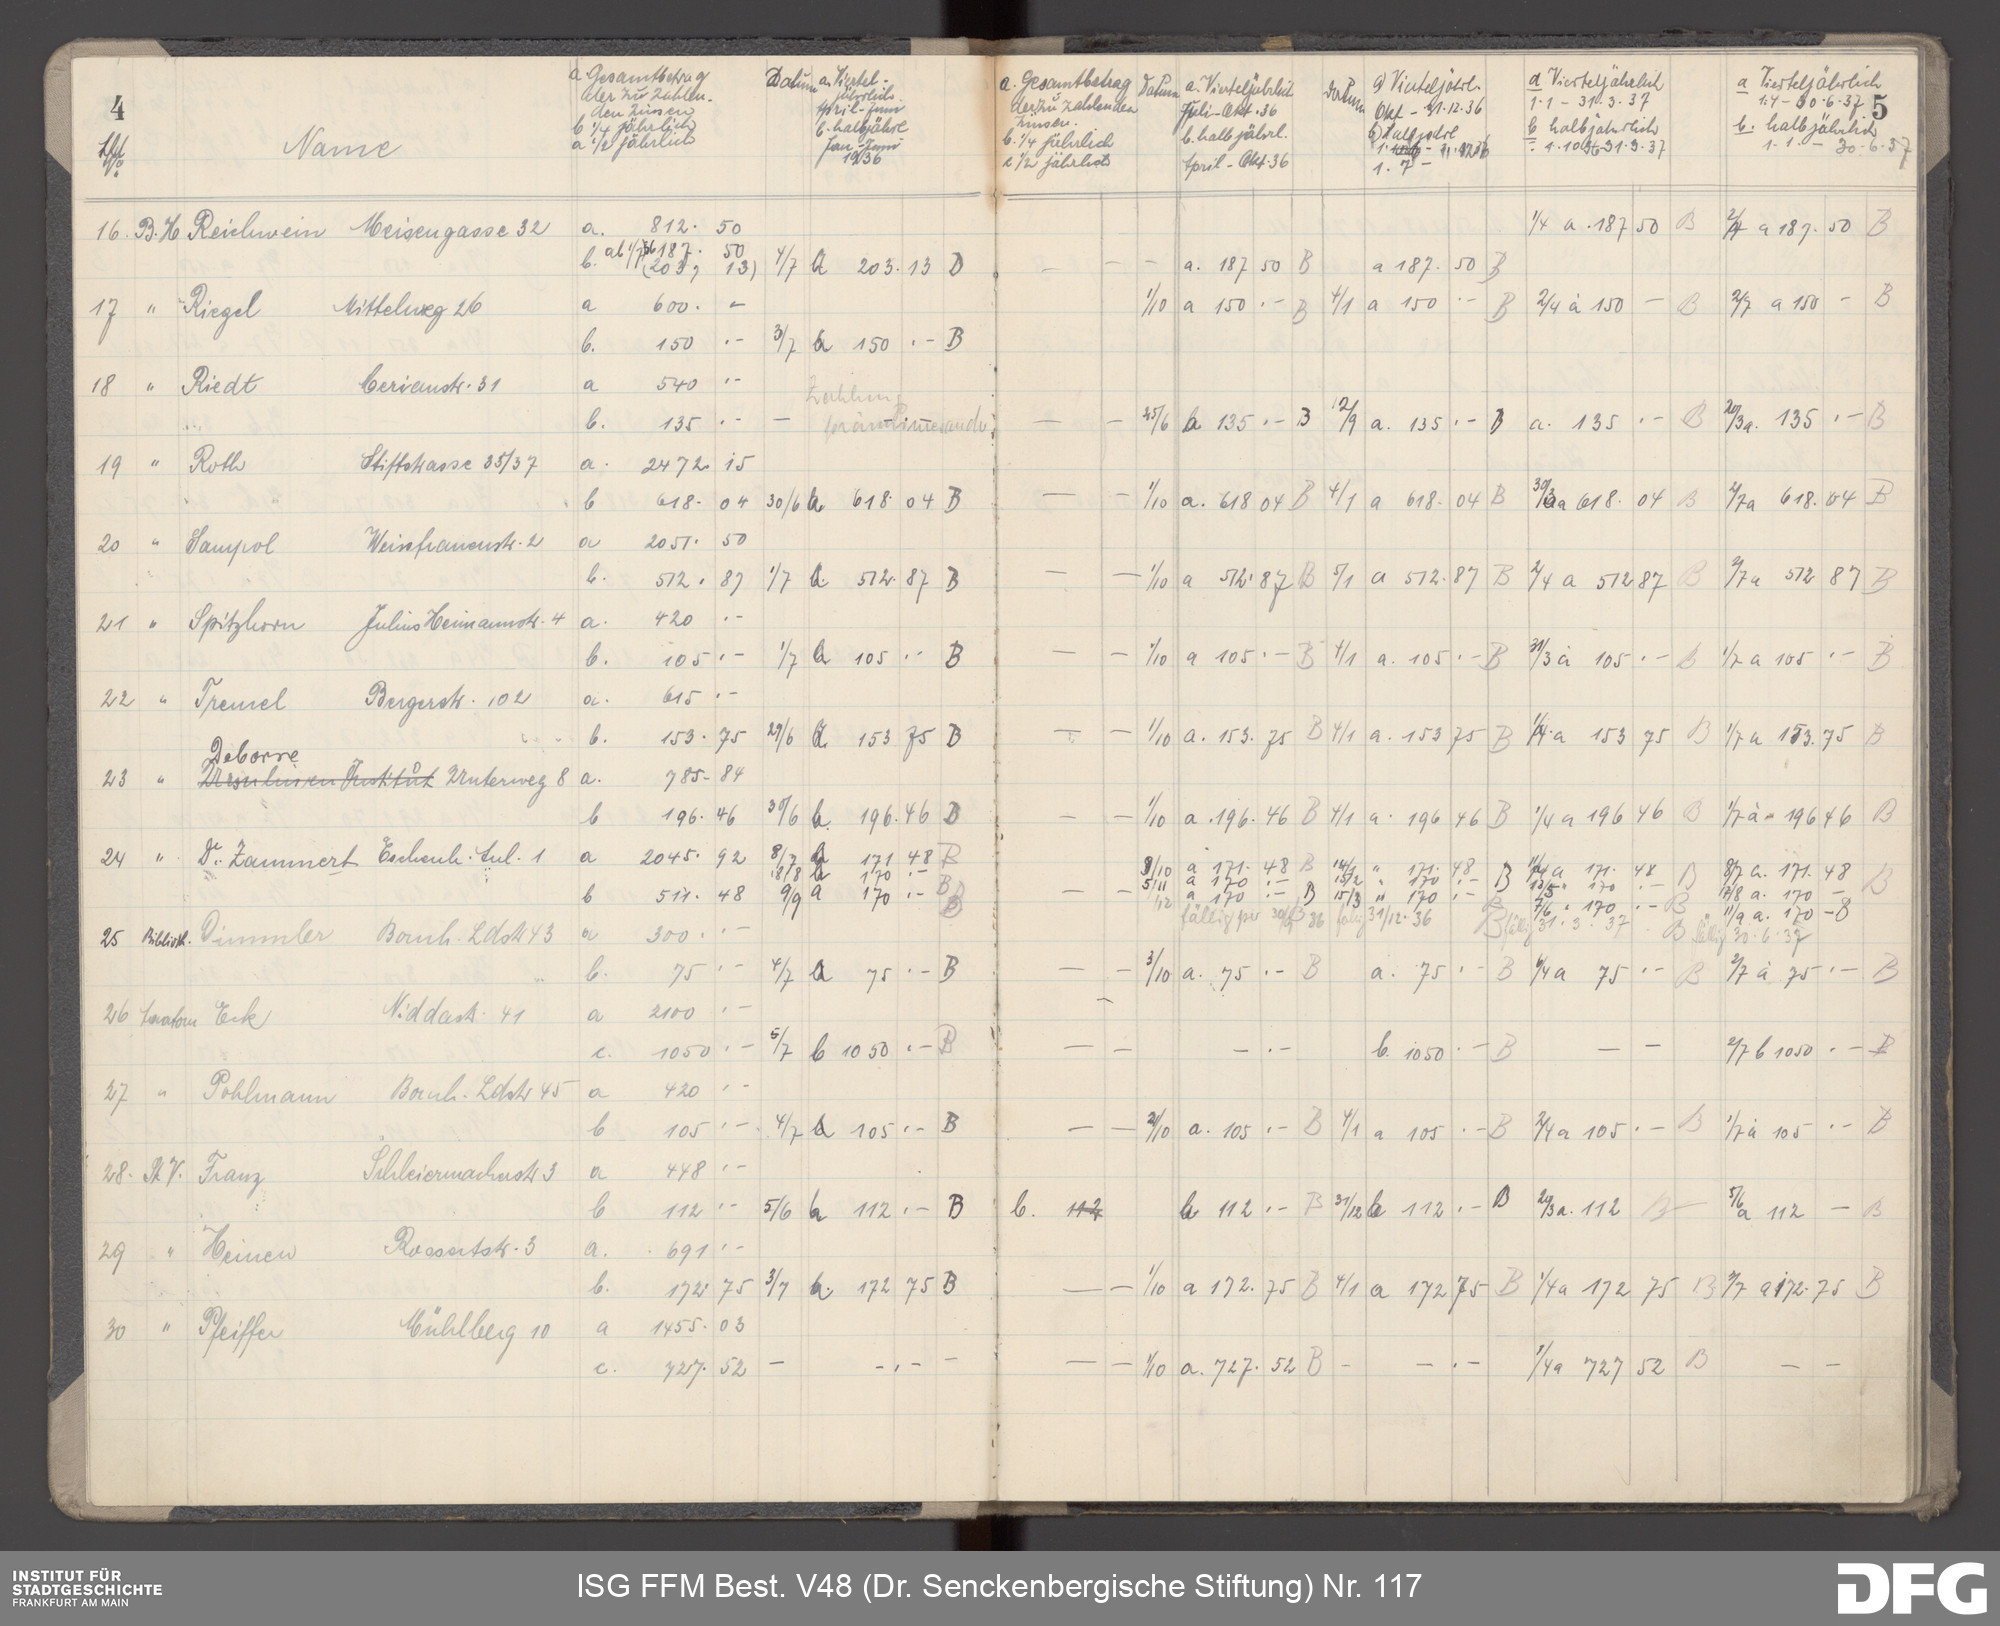 4
Lfd. No.
Name
a. Gesamtbetrag
der zu zahlen-
den Zinsen
b 1/4 jährlich
a 1/2 jährlich
Datum
a. Viertel-
jährlich.
April-Juni
b. halbjährl
Jan-Juni
1936
a. Gesamtbetrag
der zu zahlenden
Zinsen.
b. 1/4 jährlich
c 1/2 jährlich
Datum
a. Vierteljährlich
Juli-Okt. 36
b. halbjährl.
April-Okt. 36
Datum
a) Vierteljährl.
Okt - 31.12.36
b) Halbjährl
1. 7 -
a Vierteljährlich
1.1 - 31.3.37
b halbjährlich
1.10.36-31.3.37
a Vierteljährlich
1.4 - 30.6.37
b. halbjährlich
1.1. - 30.6.37
5
16. B.H Reichwein Meisengasse 32 a. 812. 50 1/4 a. 187 50 B a 187. 50 B
b. ab 1/7 36 187. 50 (203, 13) 4/7 b 203. 13 B — — — a. 187 50 B a 187. 50 B
17 " Riegel Mittelweg 26 a 600. - 1/10 a 150 .- B 4/1 a 150 .- B 2/4 à 150 - B 2/7 a 150 - B
b. 150 .- 3/7 b 150 .- B
18 " Riedt Merianstr. 31 a 540 .- Zahlung
b. 135 .- — pränumerando — — 25/6 b 135 .- B 12/9 a. 135 .- B a. 135 .- B 20/3 a. 135 .- B
19 " Roth Stiftstrasse 35/37 a. 2472. 15
b 618. 04 30/6 b. 618. 04 B — — 1/10 a. 618 04 B 4/1 a 618. 04 B 30/3 a 618. 04 B 2/7 a 618. 04 B
20 " Sampol Weissfrauenstr. 2 a 2051. 50
b. 512. 87 1/7 b. 512. 87 B — — 1/10 a 512. 87 B 5/1 a 512. 87 B 2/4 a 512 87 B 2/7 a 512 87 B
21 " Spitzhorn Julius Heimannstr. 4 a. 420 .-
b. 105 .- 1/7 b 105 .- B — — 1/10 a 105 .- B 4/1 a. 105 .- B 31/3 à 105 .- B 1/7 a 105 .- B
22 " Tremel Bergerstr. 102 a. 615 .-
b. 153. 75 29/6 b. 153 75 B — — 1/10 a. 153. 75 B 4/1 a. 153 75 B 1/4 a 153 75 B 1/7 a 153. 75 B
Deborre
23 " Ursulinen Institut Unterweg 8 a. 785. 84
b 196. 46 30/6 b. 196. 46 B — — 1/10 a. 196. 46 B 4/1 a. 196 46 B 1/4 a 196 46 B 1/7 à 196 46 B
24 " Dr. Zammert Eschenh. Anl. 1 a 2045. 92 8/7 b 171 48 B 8/10 a 171. 48 B 14/1 " 171. 48 B a 171. 48 B 8/7 a. 171. 48 B
18/8 b 170 .- 5/11 a 170 .- 15/2 " 170 .- 12/5 " 170 .- 17/8 a. 170 -
b 511. 48 9/9 a 170 .- B — — 1/12 a 170 .- B 15/3 " 170 .- 7/6 " 170 .- B 11/9 a. 170 - B
fällig per 30/9 36 fällig 31/12. 36 fällig 31. 3. 37 fällig 30. 6. 37
25 Biblioth. Dimmler Bornh. Ldstr 43 a 300. .-
b. 75 .- 4/7 b 75 .- B — — 3/10 a. 75 .- B a. 75 .- B 6/4 a 75 .- B 2/7 à 75 .- B
26 Anatom Eck Niddastr. 41 a 2100 .-
c. 1050 .- 5/7 b 1050 .- B — — — .- b. 1050 .- B — — 2/7 b 1050 .- B
27 " Pohlmann Bornh. Ldstr 45 a 420 .-
b 105 .- 4/7 b 105 .- B — — 2/10 a. 105 .- B 4/1 a 105 .- B 2/4 a 105 .- B 1/7 à 105 .- B
28. St V. Franz Schleiermacherstr 3 a 448 .-
b 112 .- 5/6 b 112 .- B b. 112 b 112 .- B 31/12 b 112 .- B 20/3 a. 112 B 5/6 a 112 - B
29 " Heinen Rossertstr. 3 a. 691 .-
b. 172. 75 3/7 b. 172 75 B — — 1/10 a 172. 75 B 4/1 a 172 75 B 1/4 a 172 75 B 2/7 a 172. 75 B
30 " Pfeiffer Mühlberg 10 a 1455. 03
c. 727. 52 — -.- - — — 1/10 a. 727. 52 B - — .- 1/4 a 727 52 B — —
INSTITUT FÜR
STADTGESCHICHTE
FRANKFURT AM MAIN
ISG FFM Best. V48 (Dr. Senckenbergische Stiftung) Nr. 117
DFG